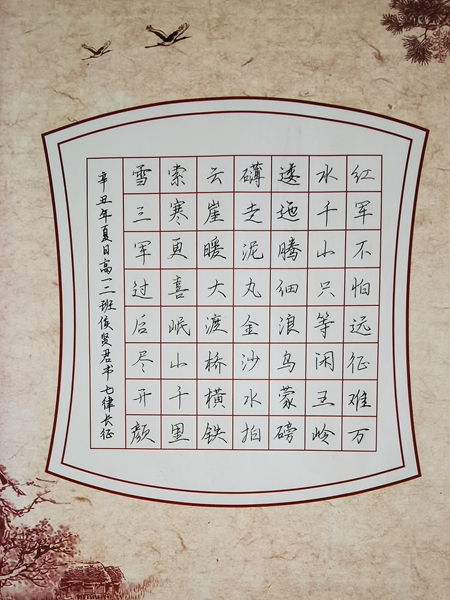 红军不怕远征难万
水千山只等闲五岭
逶迤腾细浪乌蒙磅
礴走泥丸金沙水拍
云崖暖大渡桥横铁
索寒更喜岷山千里
雪三军过后尽开颜
辛丑年夏日高一二班侯贤君书七律长征